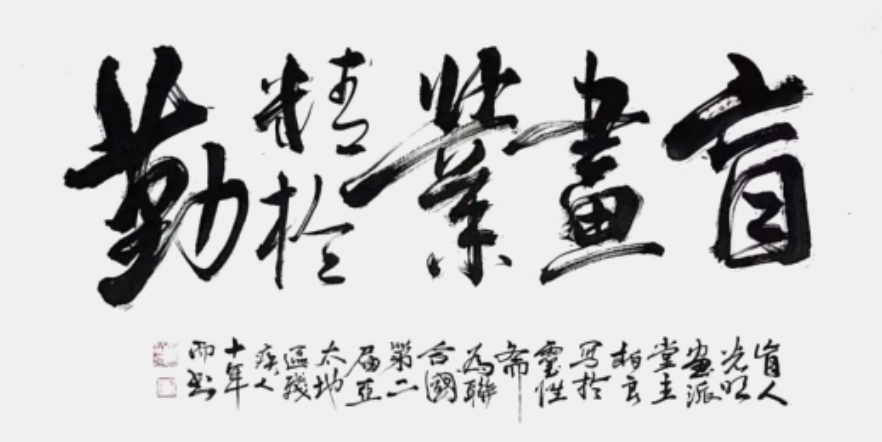 盲畫業精於勤
盲人
光明
畫派
堂主
柏良
写於
靈性
斋
為聯
合國
第二
届亞
太地
區殘
疾人
十年
而书